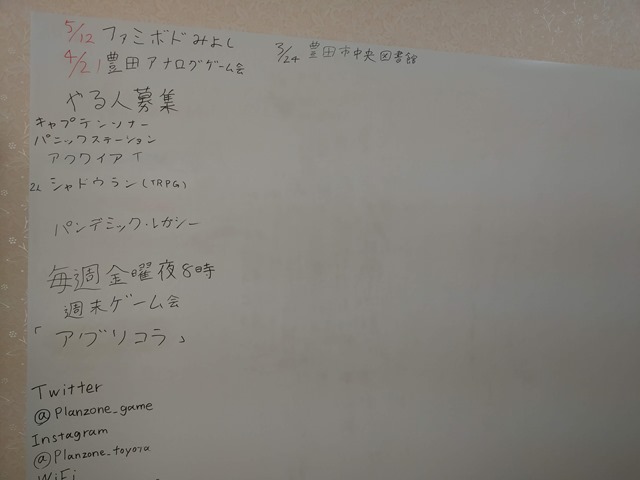 5/12 ファミボドみよし
4/21 豊田アナログゲーム会
3/24 豊田市中央図書館
やる人募集
キャプテンソナー
パニックステーション
アクワイア
シャドウラン(TRPG)
パンデミック・レガシー
毎週金曜夜8時
週末ゲーム会
「アグリコラ」
Twitter
@Planzone_game
Instagram
@Planzone_toyota
WiFi